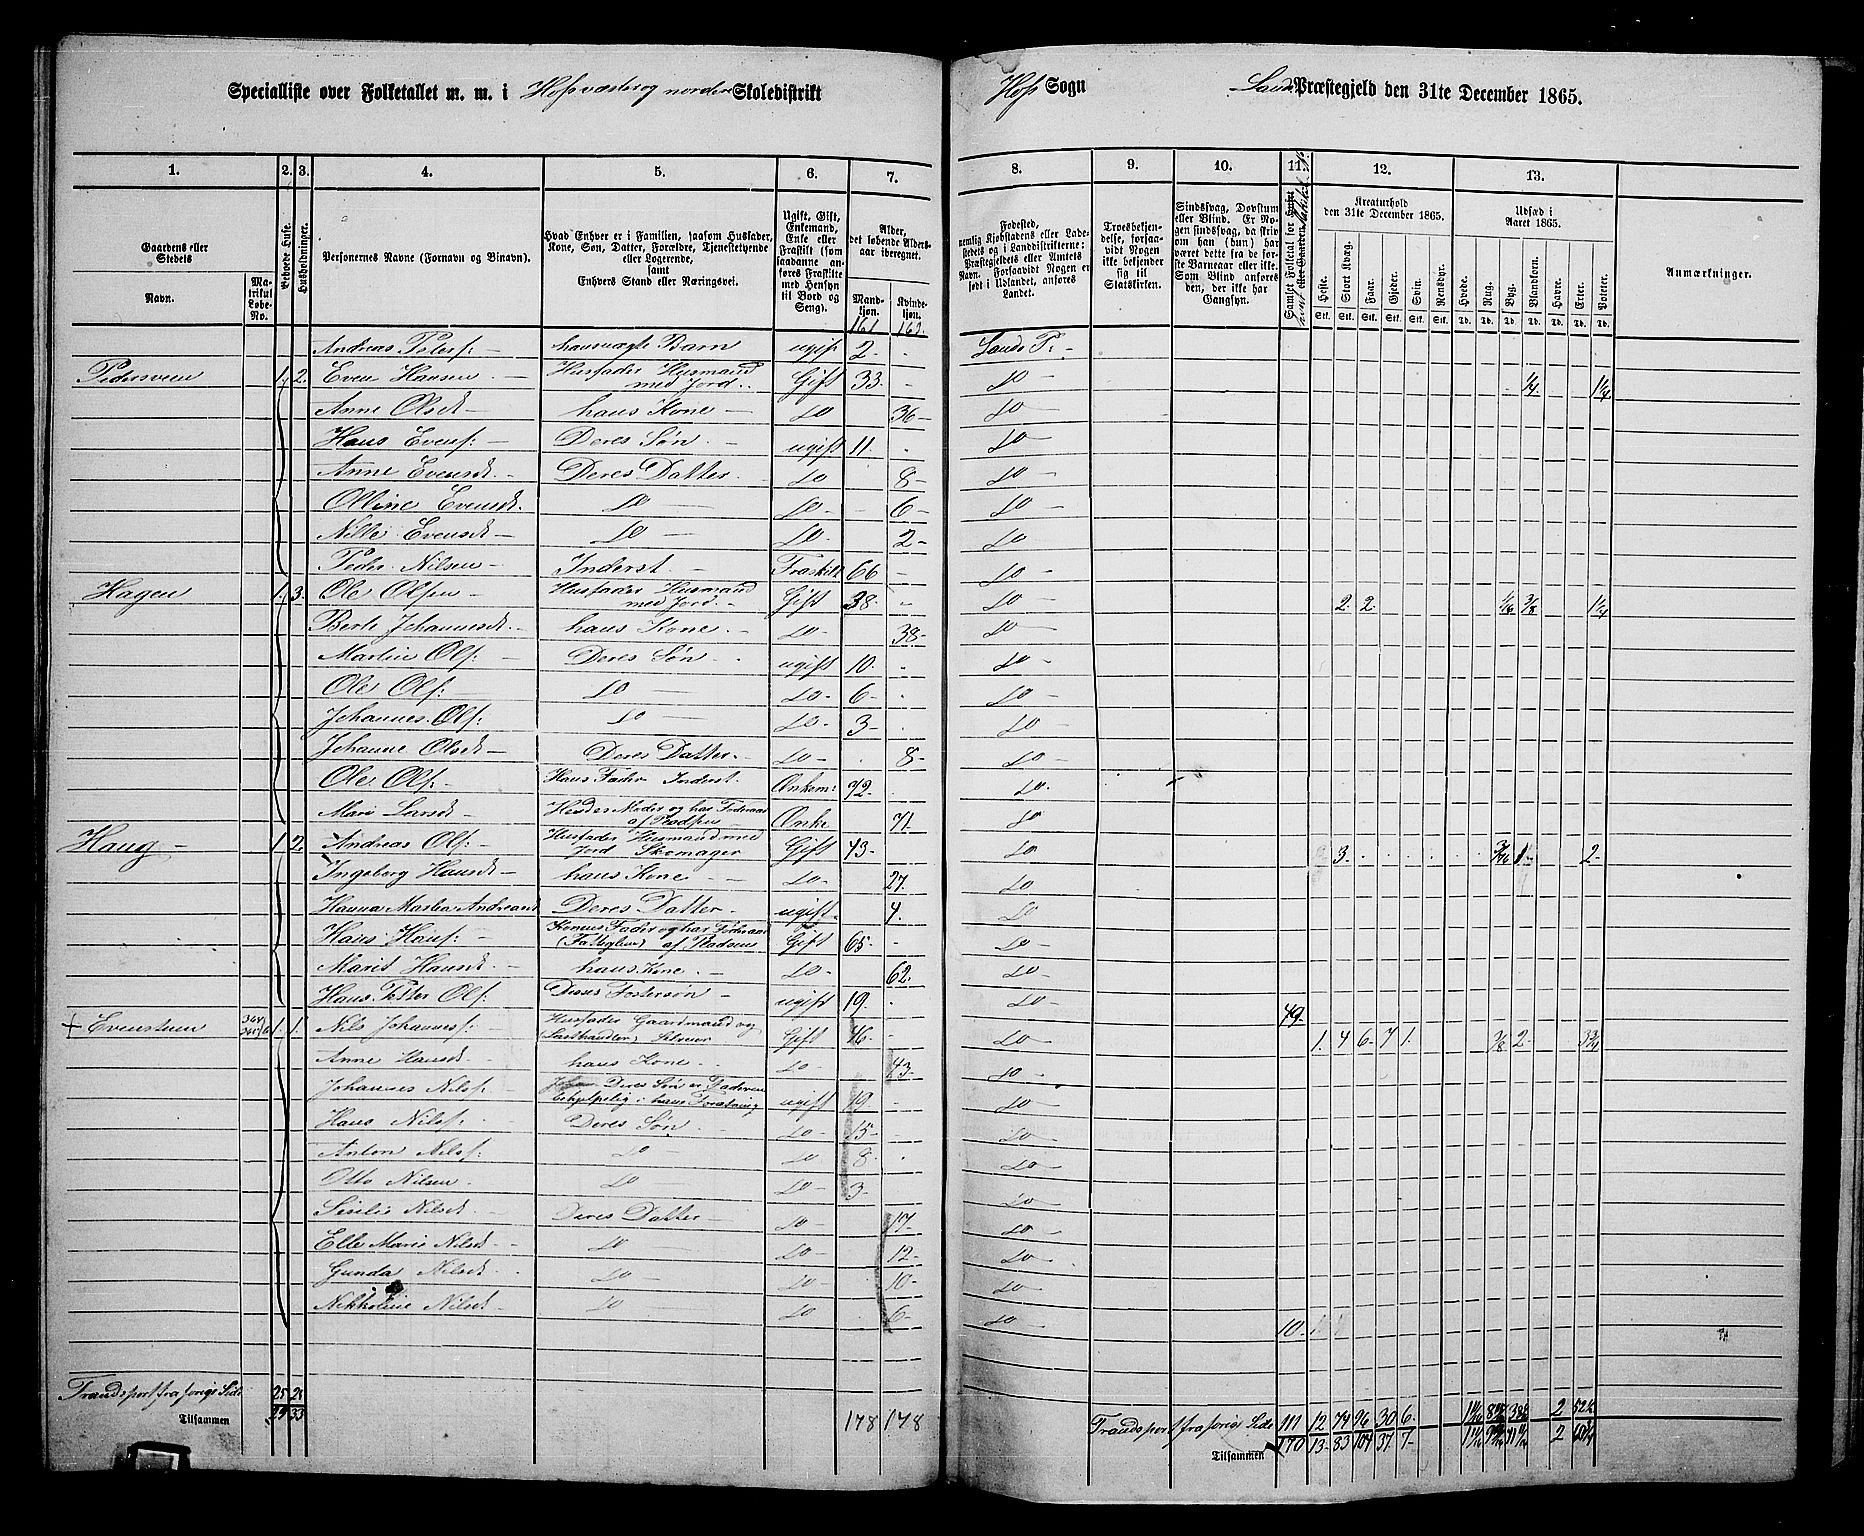 Specialliste over Folketallet m. m. i Hofs vestre og nordre Skoledistrikt
Hofs Sogn
Lands Præstegjeld den 31te December 1865.
1. 2. 3. 4. 5. 6. 7.
8. 9. 10. 11. 12. 13.
Gaardens eller Stedets
Navn.
Matrikul Løbe-No.
Beboede Huse.
Husholdninger.
Personernes Navne (Fornavn og Binavn).
Hvad Enhver er i Familien, saasom Husfader, Kone, Søn, Datter, Forældre, Tjenestetyende eller Logerende,
samt
Enhvers Stand eller Næringsvei.
Ugift, Gift, Enkemand, Enke eller Fraskilt (som saadanne anføres Fraskilte med Hensyn til Bord og Seng).
Alder, det løbende Alders-aar iberegnet.
Mandkjøn. Kvindekjøn.
161
Fødested, nemlig Kjøbstadens eller Ladestedets og i Landdistrikterne: Præstegjeldets eller Amtets Navn. Forsaavidt Nogen er født i Udlandet, anføres Landet.
Troesbekjendelse, forsaavidt Nogen ikke bekjender sig til Statskirken.
Sindssvag, Døvstum eller Blind. Er Nogen sindssvag, da skrives om han (hun) har været dette fra de første Barneaar eller ikke. Som Blind anføres den, der ikke har Gangsyn.
Kreaturhold den 31te December 1865.
Heste. Stort Kvæg. Faar. Gjeder. Svin. Rensdyr.
Stk. Stk. Stk. Stk. Stk. Stk.
Udsæd i Aaret 1865.
Hvede. Rug. Byg. Blandkorn. Havre. Erter. Poteter.
Td. Td. Td. Td. Td. Td. Td.
Anmærkninger.
Andreas Peters: — Barn ugift 2 - Lands P: -
Pedersveen 1. 2. Even Hansen — Husfader Husmand med Jord Gift 33. do — 1/4. 1 1/4
Anne Olsd — hans Kone — do 36 - do —
Hans Evens: — Deres Søn. — ugift 11. do —
Anne Evensd. — Deres Datter. do 8 - do —
Olline Evensd. do — do - 6 - do —
Evensd — do — do - 2 - do —
Peder Nilsen — Inderst. — Fraskilt 66 do —
Hagen 1. 3. Ole Olsen — Husfader Husmand med Jord. - Gift 38 do — 2. 2. 1/16 3/8 1 1/4
Berte Johannesd. — hans Kone. — do - 38 - do —
Martin Ols: — Deres Søn ugift 10. do —
Ole Ols: — do — do - 6 - do —
Johannes Ols: do — do - 3 - do —
Johanne Olsd — Deres Datter. do - 8 - do —
Ole Ols: — Hans Fader Inderst. Enkem: 72. do.
Mari Larsd — Moder og har Føderaad af Pladsen — Enke 71. do —
Haug — 1. 2. Andreas Ols: — Husfader Husmand med Jord Skomager Gift 43 - do — 3. 3/16 1 - 2 -
Ingeborg Hansd — hans Kone — do - 27. do —
Hanna Martea Andreasd Deres Datter. ugift 4. do —
Hans Hans: — Konens Fader og har Føderaad (Fattiglem) af Pladsen Gift 65 - do —
Marit Hansd. — hans Kone. — do - 62. do —
Hans Petter Ols: Deres Fostersøn — ugift 19. do — 49.
+ Evenstuen 1. 1. Nils Johanness: Husfader Gaardmand og (Lasthandler) Selveier Gift 46 - do — 1. 4 6 - 7 1. 3/8 2 - 3 3/4
Anne Hansd. hans Kone. do - 43. do —
Johannes Nils: Deres Søn er Faderen behjelpelig i hans Forretning ugift 19 do —
Hans Nils: Deres Søn do - 15 - do —
Anton Nils: do — do 8. do —
Otto Nilsen. do do - 3 - do —
Siselie Nilsd. Deres Datter — do - 17 - do —
Elle Marie Nilsd. do — do - 12 - do —
Gunda Nilsd. do — do - 10 - do —
Nikkoline Nilsd. do — do 6 - do — 10.
Trandsport fra forrige Side 25 28
Tilsammen 29 33
178 178
Trandsport fra forrige Side 111 12 74 96 30 6 -
Tilsammen 170 13 - 83 104 37 7 -